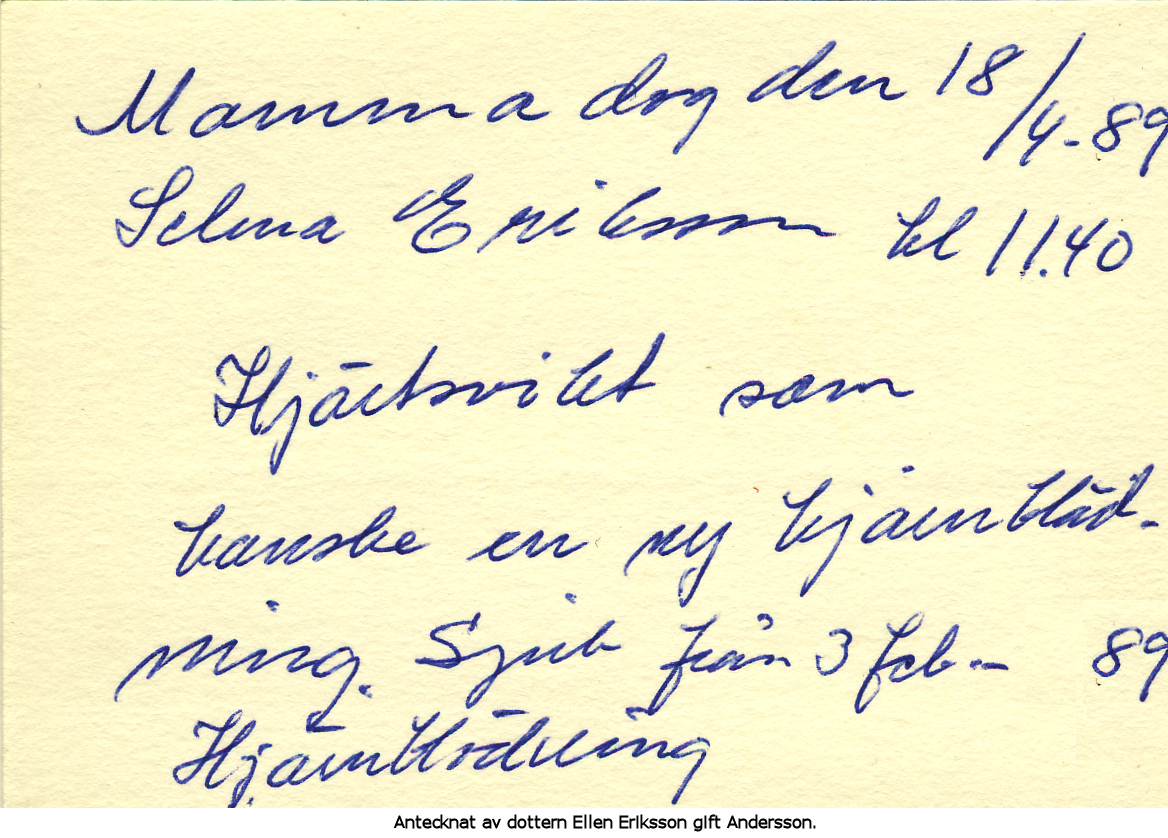 Mamma dog den 18/4-89
Selma Eriksson kl 11.40
Hjärtsvikt som
kanske en ny hjärnblöd-
ning. Sjuk från 3 feb.- 89
Hjärnblödning
Antecknat av dottern Ellen Eriksson gift Andersson.